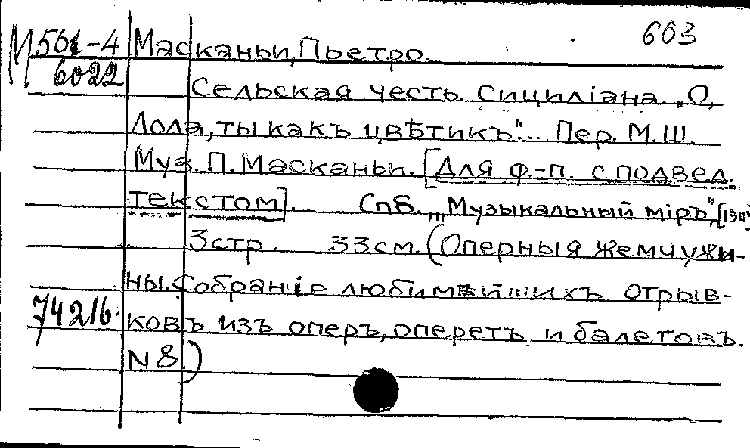 603
М 561-4 Масканьи, Пьетро.
6022
Сельская честь. Сициліана. „О,
Лола, ты какъ цвѣтикъ"... Пер. М.Ш.
Муз. П. Масканьи. [Для ф-п. с подвед.
текстом]. Спб. „Музыкальный міръ",
3 стр. 33 см. (Оперныя жемчужи-
ны. Собраніе любимѣйшихъ отрыв-
74216. ковъ изъ оперъ, оперетъ и балетовъ.
N 8)